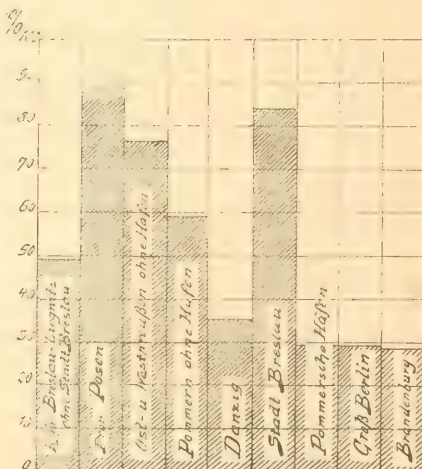 %
100
90
80
70
60
50
40
30
20
10
0
Breslau-Liegnitz
ohne Stadt Breslau
Prov. Posen
Ost- u. Westpreußen ohne Häfen
Pommern ohne Häfen
Danzig
Stadt Breslau
Pommersche Häfen
Groß Berlin
Brandenburg